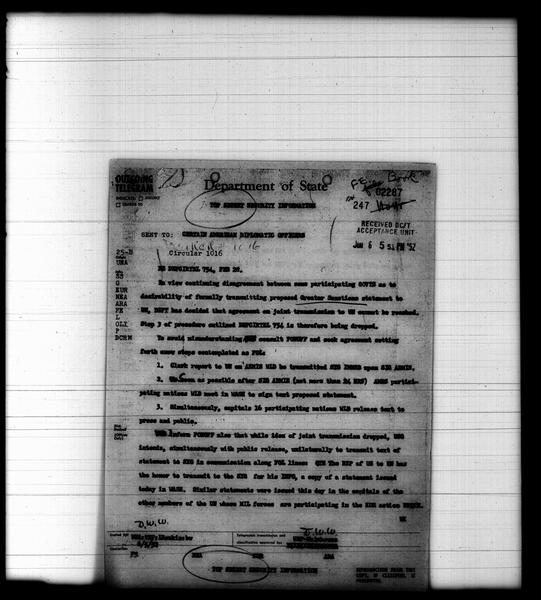 OUTGOING
TELEGRAM
Department of State
Book
02287
247
TOP SECRET SECURITY INFORMATION
RECEIVED DC/T
ACCEPTANCE UNIT
JUN 6 5 PM '52
SENT TO: CERTAIN AMERICAN DIPLOMATIC OFFICERS
Circular 1016
25-H
UNA
SS
G
EUR
NEA
ARA
FE
L
OLI
P
DCRM
RE DEPCIRTEL 754, FEB 26.
In view continuing disagreement between some participating GOVTS as to
desirability of formally transmitting proposed Greater Sanctions statement to
UN, DEPT has decided that agreement on joint transmission to UN cannot be reached.
Step 3 of procedure outlined DEPCIRTEL 754 is therefore being dropped.
To avoid misunderstanding consult FONOFF and seek agreement setting
forth same steps contemplated as FOL:
1. Clark report to UN on ARMIS WLD be transmitted SYG IMMED upon SIG ARMIS.
2. As soon as possible after SIG ARMIS (not more than 24 HRS) AMBS partici-
pating nations WLD meet in WASH to sign text proposed statement.
3. Simultaneously, capitals 16 participating nations WLD release text to
press and public.
inform FONOFF also that while idea of joint transmission dropped, USG
intends, simultaneously with public release, unilaterally to transmit text of
statement to SYG in communication along FOL lines: QTE The REP of US to UN has
the honor to transmit to the SYG for his INFO, a copy of a statement issued
today in WASH. Similar statements were issued this day in the capitals of the
other members of the UN whose MIL forces are participating in the KOR action
D.W.W.
D.W.W.
Telegraphic transmission and
classification approved by:
TOP SECRET SECURITY INFORMATION
REPRODUCTION FROM THIS
COPY, IF CLASSIFIED, IS
PROHIBITED